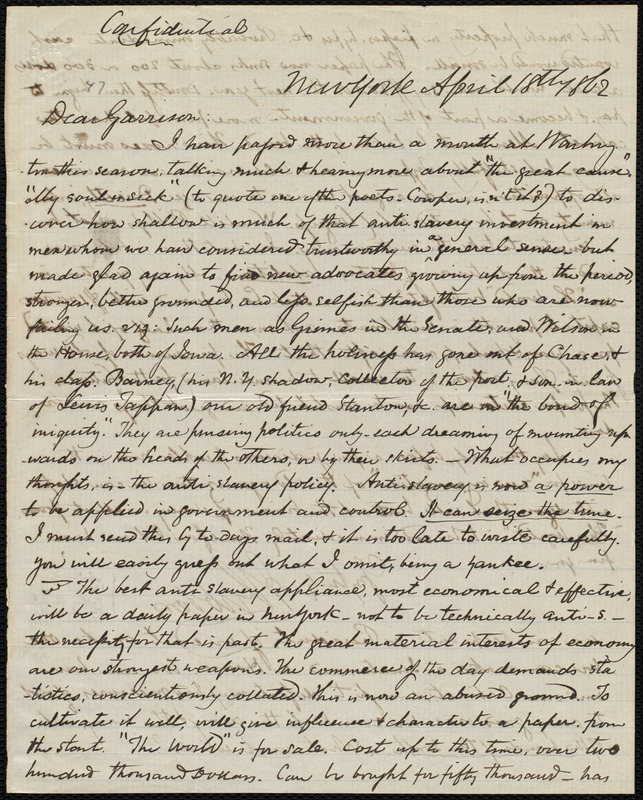 Confidential
New York April 18th, 1862
Dear Garrison:
I have passed more than a month at Washing-
ton this season, talking much & hearing more about "the great cause".
"My soul is sick" (to quote one of the poets - Cowper, is n't it?) to dis-
cover how shallow is much of that anti slavery investment in
men whom we have considered trustworthy in a general sense, but
made glad again to find new advocates growing up from the period,
stronger, better grounded, and less selfish than those who are now
failing us. viz: Such men as Grimes in the Senate, and Wilson in
the House, both of Iowa. All the holiness has gone out of Chase, &
his class. Barney, (his N. Y. shadow, collector of the port, & son-in law
of Lewis Tappan) our old friend Stanton, &c. are in "the bond of
iniquity." They are pursuing politics only - each dreaming of mounting up-
wards on the heads of the others, or by their skirts. - What occupies my
thoughts, is - the anti slavery policy. Anti-slavery is now "a power"
to be applied in government and control. It can seize the time.
I must send this by to-days mail, & it is too late to write carefully.
You will easily guess out what I omit, being a yankee.
The best anti slavery appliance, most economical & effective,
will be a daily paper in New York - not to be technically anti-s. -
the necessity for that is past. The great material interests of economy
are our strongest weapons. The commerce of the day demands sta-
tistics, conscientiously collected. This is now an abused ground. To
cultivate it well, will give influence & character to a paper, from
the start. "The World" is for sale. Cost up to this time, over two
hundred thousand Dollars. Can be bought for fifty thousand - has